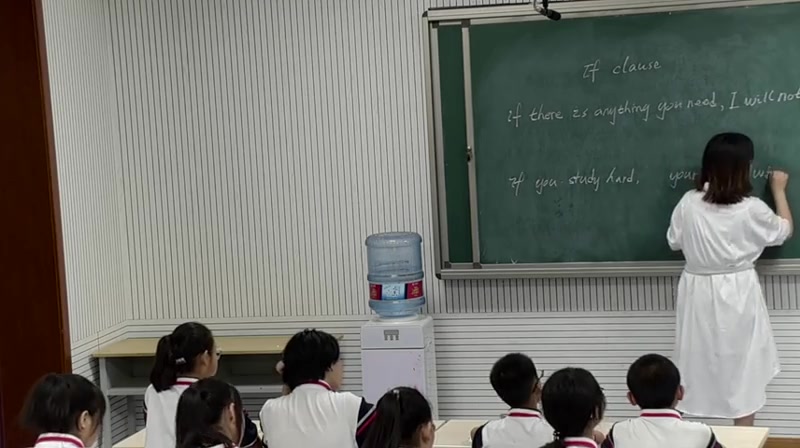 If clause
if there is anything you need, I will not
if you study hard, your wi